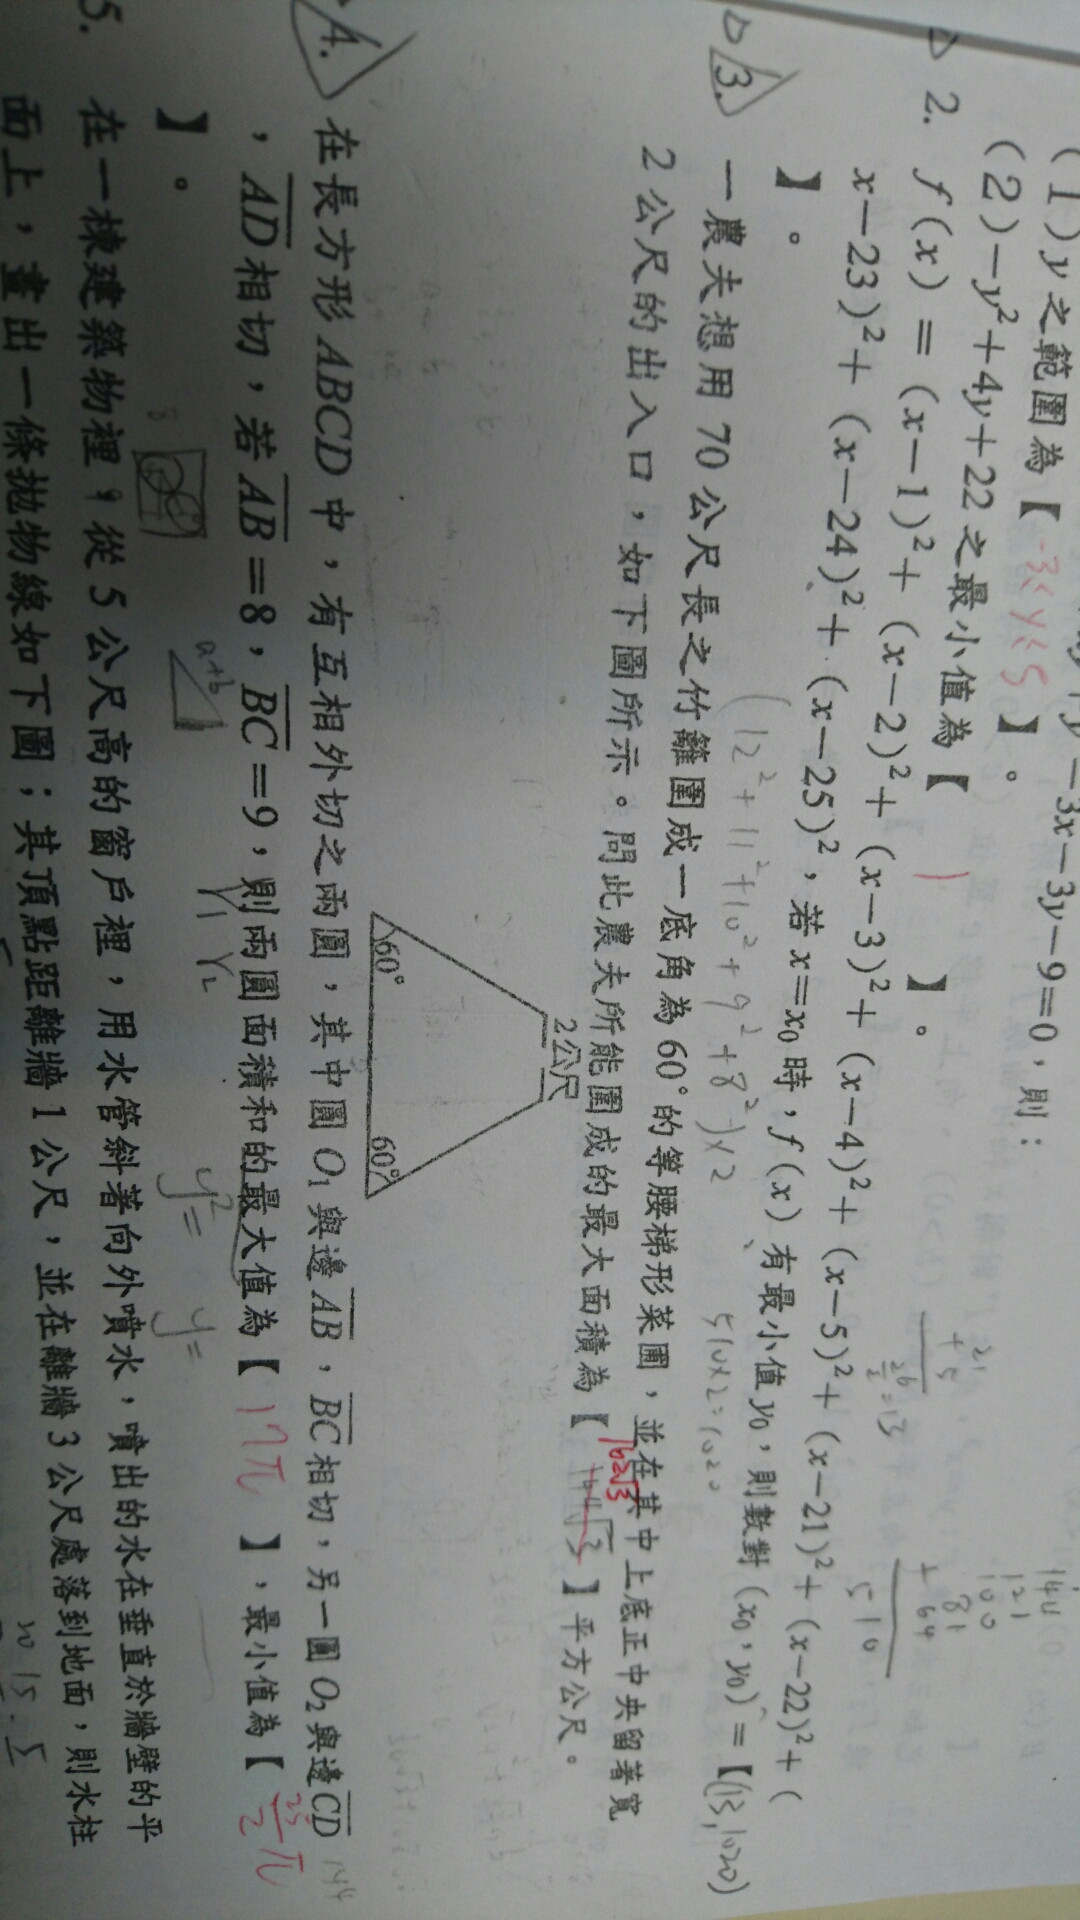 -3x-3y-9=0，則：
(1) y之範圍為【 -3≤y≤5 】。
(2) -y²+4y+22之最小值為【 1 】。
2. f(x)=(x-1)²+(x-2)²+(x-3)²+(x-4)²+(x-5)²+(x-21)²+(x-22)²+(
x-23)²+(x-24)²+(x-25)²，若x=x₀時，f(x)有最小值y₀，則數對(x₀，y₀)=【(13,1020)
】。
(12²+11²+10²+9²+8²)×2
510×2=1020
21
+5
26/2=13
144
121
100
81
+64
510
3. 一農夫想用70公尺長之竹籬圍成一底角為60°的等腰梯形菜圃，並在其中上底正中央留著寬
2公尺的出入口，如下圖所示。問此農夫所能圍成的最大面積為【 144√3 162√3 】平方公尺。
2公尺
60° 60°
4. 在長方形ABCD中，有互相外切之兩圓，其中圓O₁與邊AB，BC相切，另一圓O₂與邊CD
，AD相切，若AB=8，BC=9，則兩圓面積和的最大值為【 17π 】，最小值為【 25/2 π
】。
144
8
a+b
y²= y=
5. 在一棟建築物裡，從5公尺高的窗戶裡，用水管斜著向外噴水，噴出的水在垂直於牆壁的平
面上，畫出一條拋物線如下圖；其頂點距離牆1公尺，並在離牆3公尺處落到地面，則水柱